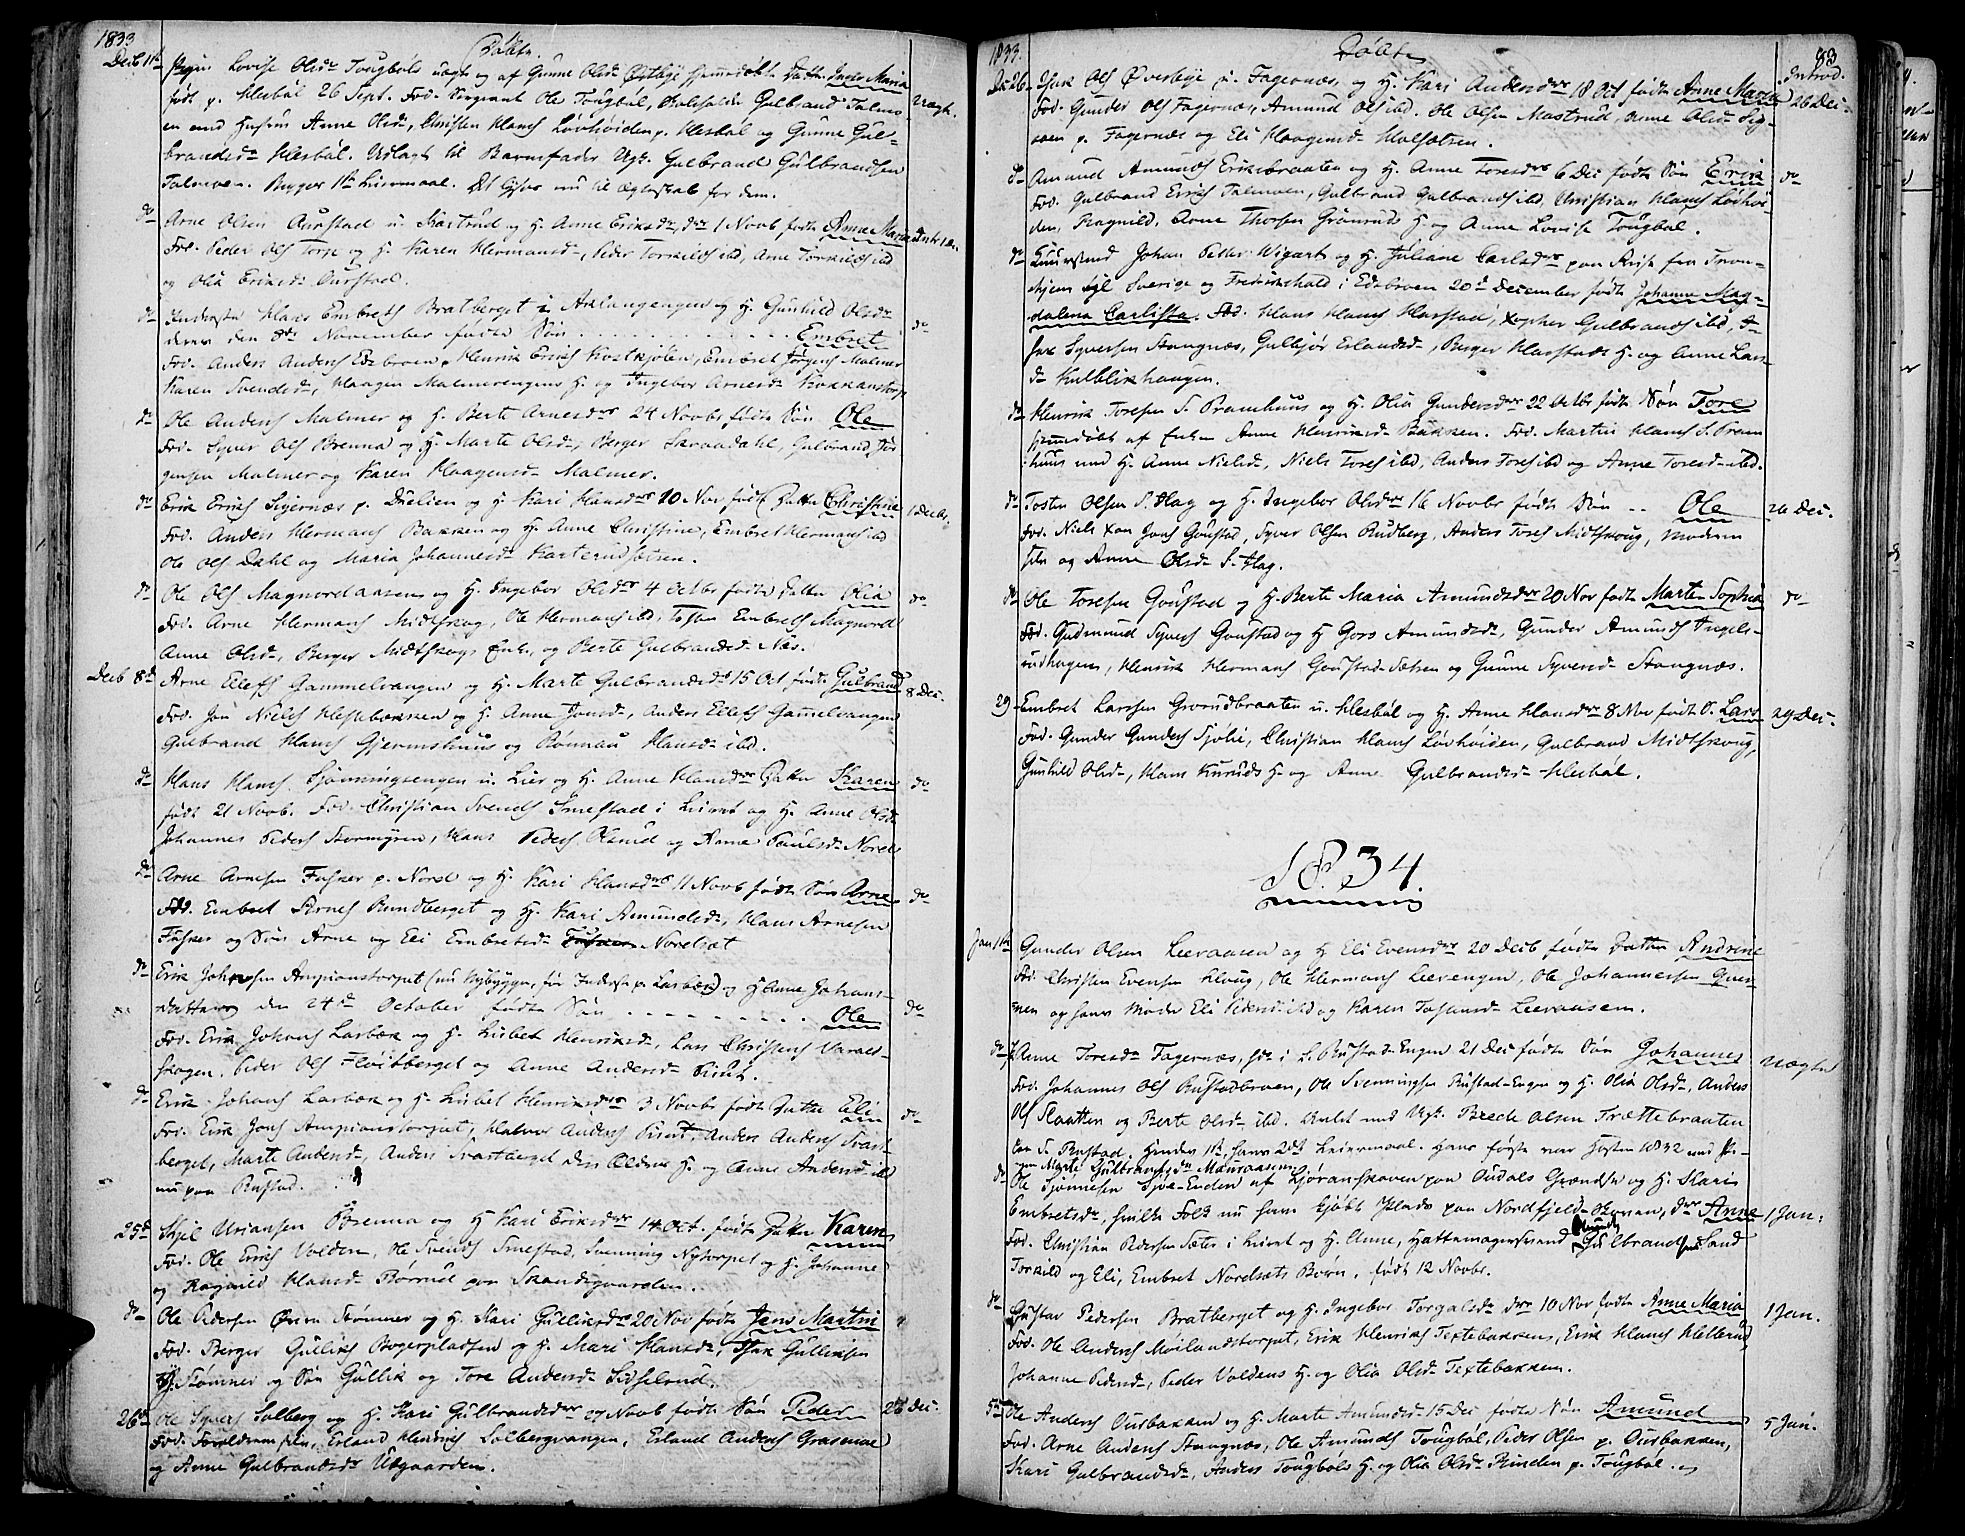 1833
Døbte.
Decb 1ste Pigen Lovise Olsd. Tougbøls uægte og af Gunne Olsd. Østbye hjemmedøbte Datter Inger Maria
født p. Klesbøl 26 Sept. Fad. Sergeant Ole Tougbøl, Gulbrand Talmo- uægte.
en med Hustru Anne Olsd., Christen Hanss Løvhøiden p. Klesbøl og Gunne Gul-
brandsd. Klesbøl. Udlagt til Barnefader Ugk. Gulbrand Gulbrandsen
Talmoen. Begges 1ste Leiermaal. Det lyses nu til Ægteskab for dem.
do Arne Olsen Aurstad u. Skartrud og H. Anne Eriksdr. der 1 Novb. fødte Anne Maria Introd.
Fad. Peder Ols Torp og H. Karen Hermansd., Peder Torkilds ibd, Arne Torkilds ibd
og Olia Eriksd. Aurstad.
do Inderste Hans Embrets Bratberget i Aklangengen og H. Gunhild Olsdr. do
der den 8de November fødte Søn . . . . . Embret
Fad. Anders Anders Edsbroen, Henrik Erichs Kostkjølen, Embret Jørgens Malmer
Karen Svendsd., Haagen Malmerengens H. og Ingebor Arnesd. Kokkanstorp
do Ole Anders Malmer og H. Berte Arnesdr. 24 Novbr. fødte Søn Ole
Fad. Syver Ols Brenna og H. Marte Olsd., Berger Skraadahl, Gulbrand Jør-
gensen Malmer og Karen Haagensd. Malmer.
do Erik Erichs Sigernæs p. Dælien og H. Kari Hansdr. 10 Nov fødte Datter Christine 1 Decbr.
Fad. Anders Hermans Bakken og H. Anne Christine, Embret Hermans ibd
Ole Ols Dahl og Maria Johannesd. Karterudsætren.
do Ole Ols Magnordaasens og H. Ingebor Olsdr. 4 Octbr fødte Datter Olia do
Fad. Arne Hermans Midtskog, Ole Hermans ibd, Tosten Embrets Magnord
Anne Olsd., Berger Midtskogs Enke, og Berte Gulbrandsd. Næs.
Decb 8de Arne Elefs Gammelvangen og H. Marte Gulbrandsdr. 15 Oct fødte Gulbrand 8 Dec.
Fad. Jon Niels Hestebækken og H. Anne Jonsd., Anders Elefs Gammelvangen
Gulbrand Hans Gjermshuus og Rønnau Hansd. ibd.
do Hans Hans Sjønningsengen u. Lier og H. Anne Hansdr. Datter Karen do
født 21 Novb. Fad. Christian Svends Smestad i Leiret og H. Anne Olsd.
Johannes Peders Stormyren, Hans Peders Ølerud og Anne Paulsd. Norell
do Arne Arnesen Fusker p. Nord og H. Kari Hansdr. 11 Novb fødte Søn Arne do
Fad. Embret Arnes Rundberget og H. Kari Amundsd., Hans Arnesen
Fusker og Søn Arne og Eli Embretsd. Nordsæt
do Erik Johnsen Ampianstorpet (nu Nybygger, før Inderste p. Larbæk) og H. Anne Johans-
datter den 24de October fødte Søn . . . . . . . . Ole do
Fad. Erik Johans Larbæk og H. Lisbet Henriksd., Lars Christens Varald-
skogen, Peder Ols Fløitberget og Anne Andersd. Kirut.
do Erik Johans Larbæk og H. Lisbet Henriksdr. 3 Novbr. fødte Datter Eli do
Fad. Erik Jons Ampianstorpet, Halvor Anders Kirut, Anders Anders Svart-
berget, Marte Andersd., Anders Svartberget den Ældres H. og Anne Andersd. ibd
nu paa Rustad.
25de Skjel Uriansen Brenna og H. Kari Eriksdr. 14 Oct. fødte Datter Karen
Fad. Ole Erichs Volden, Ole Svends Smestad, Svenning Nytorpet og H. Johanne
og Ragnild Hansd. Børrud paa Strandsgaarden.
do Ole Pedersen Øvre Stømner og H. Kari Gulliksdr. 20 Nov fødte Jens Martin
Fad. Berger Gulliks Bogerpladsen og H. Mari Hansd., Isak Gulliksen
Stømner og Søn Gullik og Tore Andersd. Sidselrud.
26de Ole Syvers Solberg og H. Kari Gulbrandsdr. 27 Novb fødte Søn Peder 26 Dec.
Fad. Forældrene selv, Erland Hendrichs Solbergvangen, Erland Anders Grasmoe
og Anne Gulbrandsdr. Udgaarden.
1833. Døbte 83
Introd.
Dec 26 Isak Ols Øverbye u. Fagernæs, og H. Kari Andersdr. 18 Oct fødte Anne Maria 26 Dec.
Fad. Gunder Ols Fagernæs, Amund Ols ibd. Ole Olsen Mastrud, Anne Olsd. Sig-
aaen p. Fagernæs og Eli Haagensd. Holsætren.
do Amund Amunds Eriksbraaten og H. Anne Toresdr. 6 Dec fødte Søn Erik do
Fad. Gulbrand Erichs Talmoen, Gulbrand Gulbrands ibd, Christian Hans Løvhøi-
den, Ragnild, Arne Thorsen Grønruds H. og Anne Lovise Tougbøl.
do Johan Peder Wigart og H. Juliane Carlsdr. paa Reise fra Tron-
hjem igl Sverige og Frederikshald i Edsbroen 20de December fødte Johanne Mag-
dalena Carlista. Fad. Hans Hans Harstad, Xopher Gulbrands ibd, I-
sak Syversen Stangnæs, Gulbjør Erlandsd., Berger Harstads H. og Anne Lars-
d. Kulblikhaugen.
do Henrik Toresen S. Pramhuus og H. Olia Gundersdr. 22 Octbr fødte Søn Tore
hjemdøbt af Enken Anne Henriksd. Bakken. Fad. Martin Hans S. Pram-
huus med H. Anne Nielsd., Niels Tores ibd, Anders Tores ibd og Anne Toresd. ibd.
do Tosten Olsen S. Hag og H. Ingebor Olsdr. 16 Novbr fødte Søn .. Ole 26 Dec.
Fad. Niels Xan Jons Goustad, Syver Olsen Rudberg, Anders Tores Midtskoug, Moderen
selv og Anne Olsd. S. Hag.
do Ole Toresen Goustad og H. Berte Maria Amundsdr. 20 Nov fødte Marte Sophia do
Fad. Gudmund Syvers Goustad og H. Goro Amundsd., Gunder Amunds Ingels-
rudhagen, Henrik Hermans Goustad-Sætren og Gunne Syversd. Stangnæs.
29 Embret Larssen Grorudbraaten u. Klesbøl og H. Anne Hansdr. 8 Nov fødte S. Lars 29 Dec.
Fad. Gunder Gunders Sjølie, Christian Hans Løvhøiden, Gulbrand Midtskoug,
Gunhild Olsd., Hans Kuruds H. og Anne Gulbrandsd. Klesbøl.
1834.
Jan 1ste Gunder Olsen Leeraasen og H. Eli Evensdr. 20 Decb fødte Datter Andrine
Fad. Christen Evensen Skoug, Ole Hermans Leerengen, Ole Johannessen Ques-
nen og hans Moder Eli Pedersd. ibd og Karen Tosensd. Leeraasen.
do Anne Toresd. Fagernæs, Pige i S. Rustad-Engen 21 Dec fødte Søn Johannes uægte
Fad. Johannes Ols Rustadbroen, Ole Svenningsen Rustad-Engen og H. Olia Olsd., Anders
Ols Slaatten og Berte Olsd. ibd. Avlet med Ugk. Brede Olsen Trættebraaten
paa S. Rustad. Hendes 1ste, hans 2det Leiermaal. Hans første var Høsten 1832 med Pi-
gen Marte Gulbrandsdr. Mauraasen.
do Ole Sjønnesen Sjøe-Enden af Kjøranskoven paa Oudals Grændse og H. Kari
Embretsd., hvilke Folk nu have kjøbt Plads paa Nordfjeld-Roven, der Anne 1 Jan:
Fad. Christian Pedersen Sæter i Leiret og H. Anne, Hattemagersvend Gulbrand Lund
Torkild og Eli, Embret Nordsæts Børn. født 12 Novbr.
do Gustav Pedersen Bratberget og H. Ingebor Torgalsdr. der 10 Nov fødte Anne Maria 1 Jan.
Fad. Ole Anders Møilandstorpet, Erik Henrichs Textebakken, Erik Hans Hellerud,
Johanne Pedersd., Peder Voldens H. og Olia Olsd. Textebakken.
5te Ole Anders Ousbakken og H. Marte Amundsd. 15 Dec fødte Søn Amund 5 Jan.
Fad. Arne Anders Stangnæs, Ole Amunds Tougbøl, Peder Olsen p. Ousbakken,
Kari Gulbrandsd., Anders Tougbøls H. og Olia Olsd. Rinden p. Tougbøl.